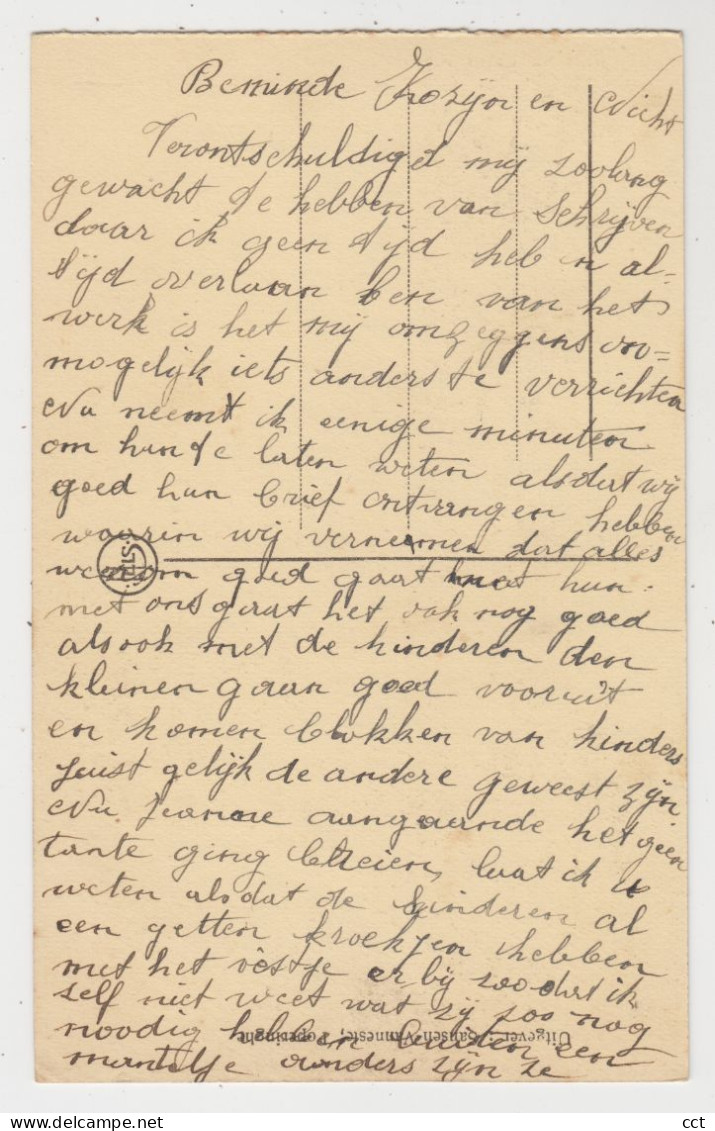 Beminde Kozijn en Nicht
Verontschuldiget mij zoolang
gewacht te hebben van schrijven
daar ik geen tijd heb n al=
tijd overlaan ben van het
werk is het mij omzeggens on=
mogelijk iets anders te verrichten
Nu neemt ik eenige minuten
om hun te laten weten alsdat wij
goed hun brief ontvangen hebben
waarin wij vernemen dat alles
goed gaat met hun.
met ons gaat het ook nog goed
alsook met de kinderen den
kleinen gaan goed vooruit
en komen blokken van kinders
juist gelijk de andere geweest zijn.
Nu Jeanne aangaande het geen
tante ging breien, laat ik u
weten alsdat de kinderen al
een getten krokjen hebben
met het vèstje er bij zoodat ik
self niet weet wat zij zoo nog
noodig hebben buiten een
mantelje anders zijn ze
Uitgever: Sansen-Vanneste, Poperinghe